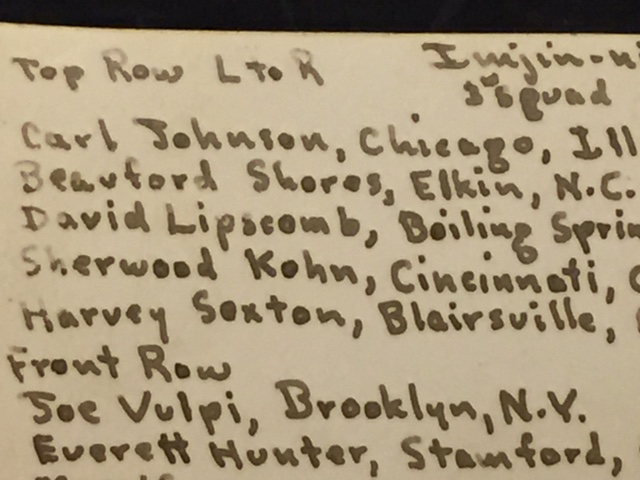 Top Row L To R Imjin-ni
3rd Squad
Carl Johnson, Chicago, Ill
Beauford Shores, Elkin, N.C.
David Lipscomb, Boiling Sprin
Sherwood Kohn, Cincinnati,
Harvey Sexton, Blairsville,
Front Row
Joe Vulpi, Brooklyn, N.Y.
Everett Hunter, Stamford,